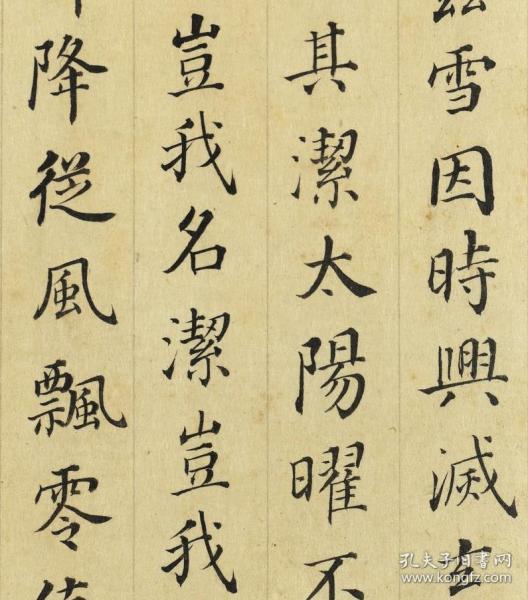 雪因時興滅玄
其潔太陽曜不
豈我名潔豈我
降従風飄零
孔夫子旧书网
www.kongfz.com